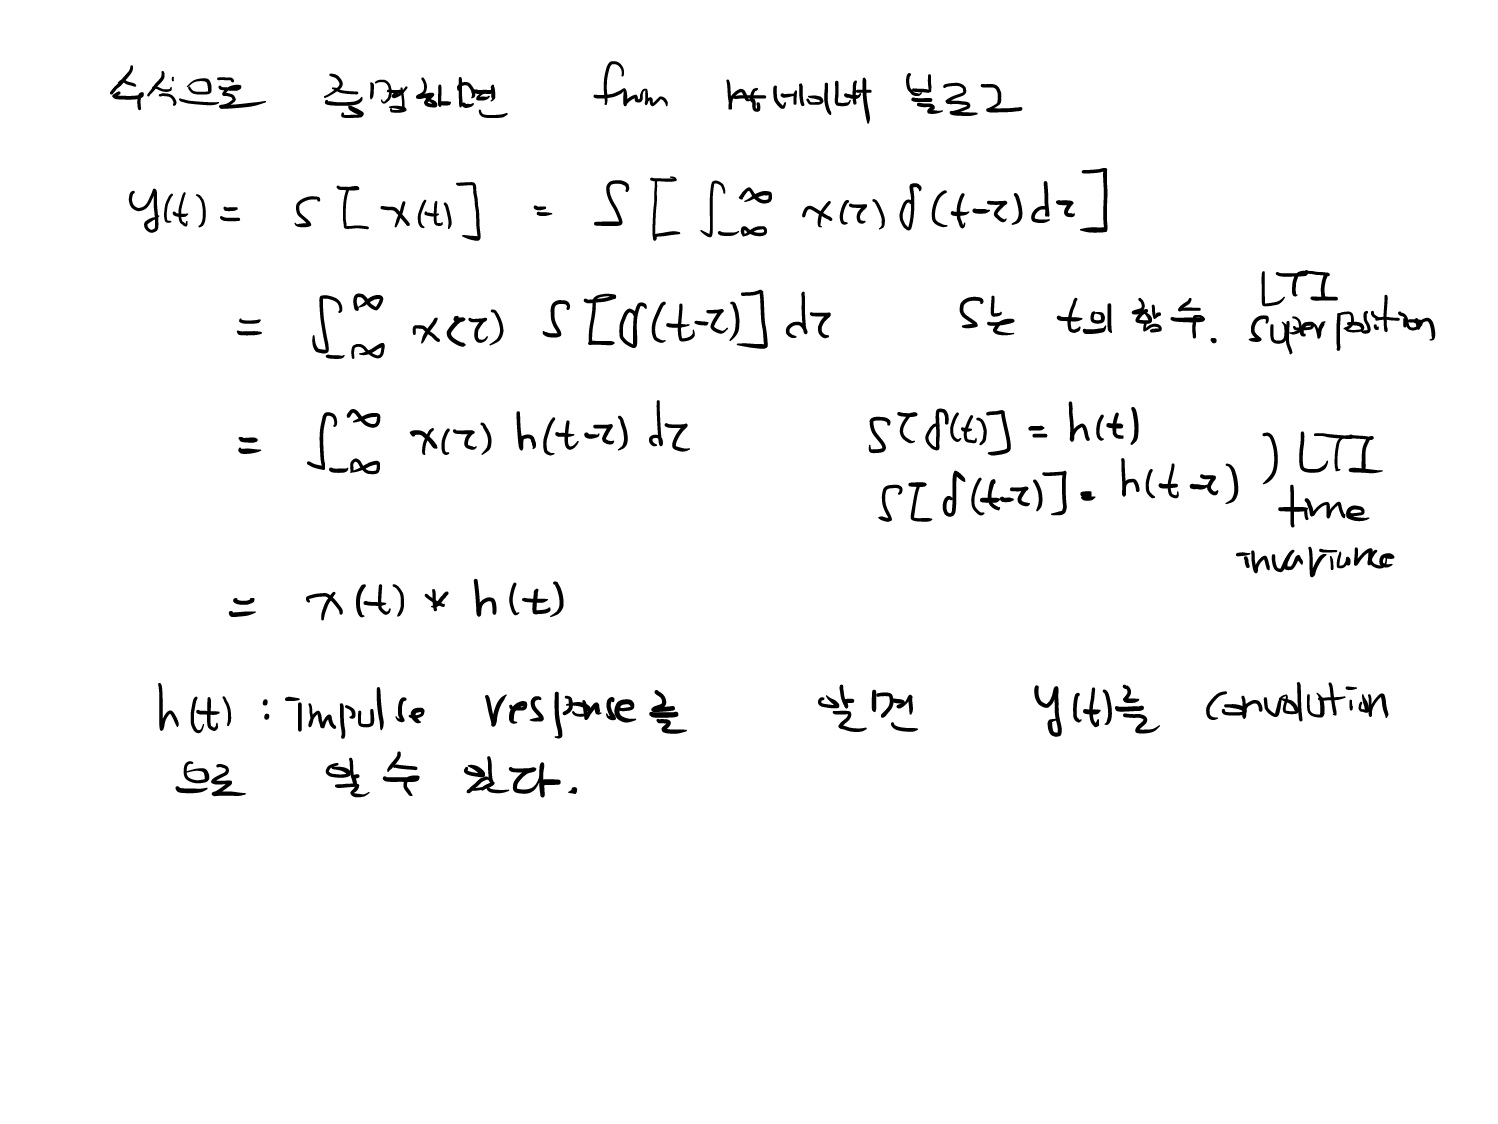 수식으로 증명하면 from 네이버 블로그
y(t) = S[x(t)] = S[∫_{-∞}^{∞} x(τ) δ(t-τ) dτ]
= ∫_{-∞}^{∞} x(τ) S[δ(t-τ)] dτ S는 t의 함수. LTI superposition
= ∫_{-∞}^{∞} x(τ) h(t-τ) dτ S[δ(t)] = h(t)
S[δ(t-τ)] = h(t-τ) ) LTI
time
invariance
= x(t) * h(t)
h(t) : impulse response를 알면 y(t)를 convolution
으로 알 수 있다.